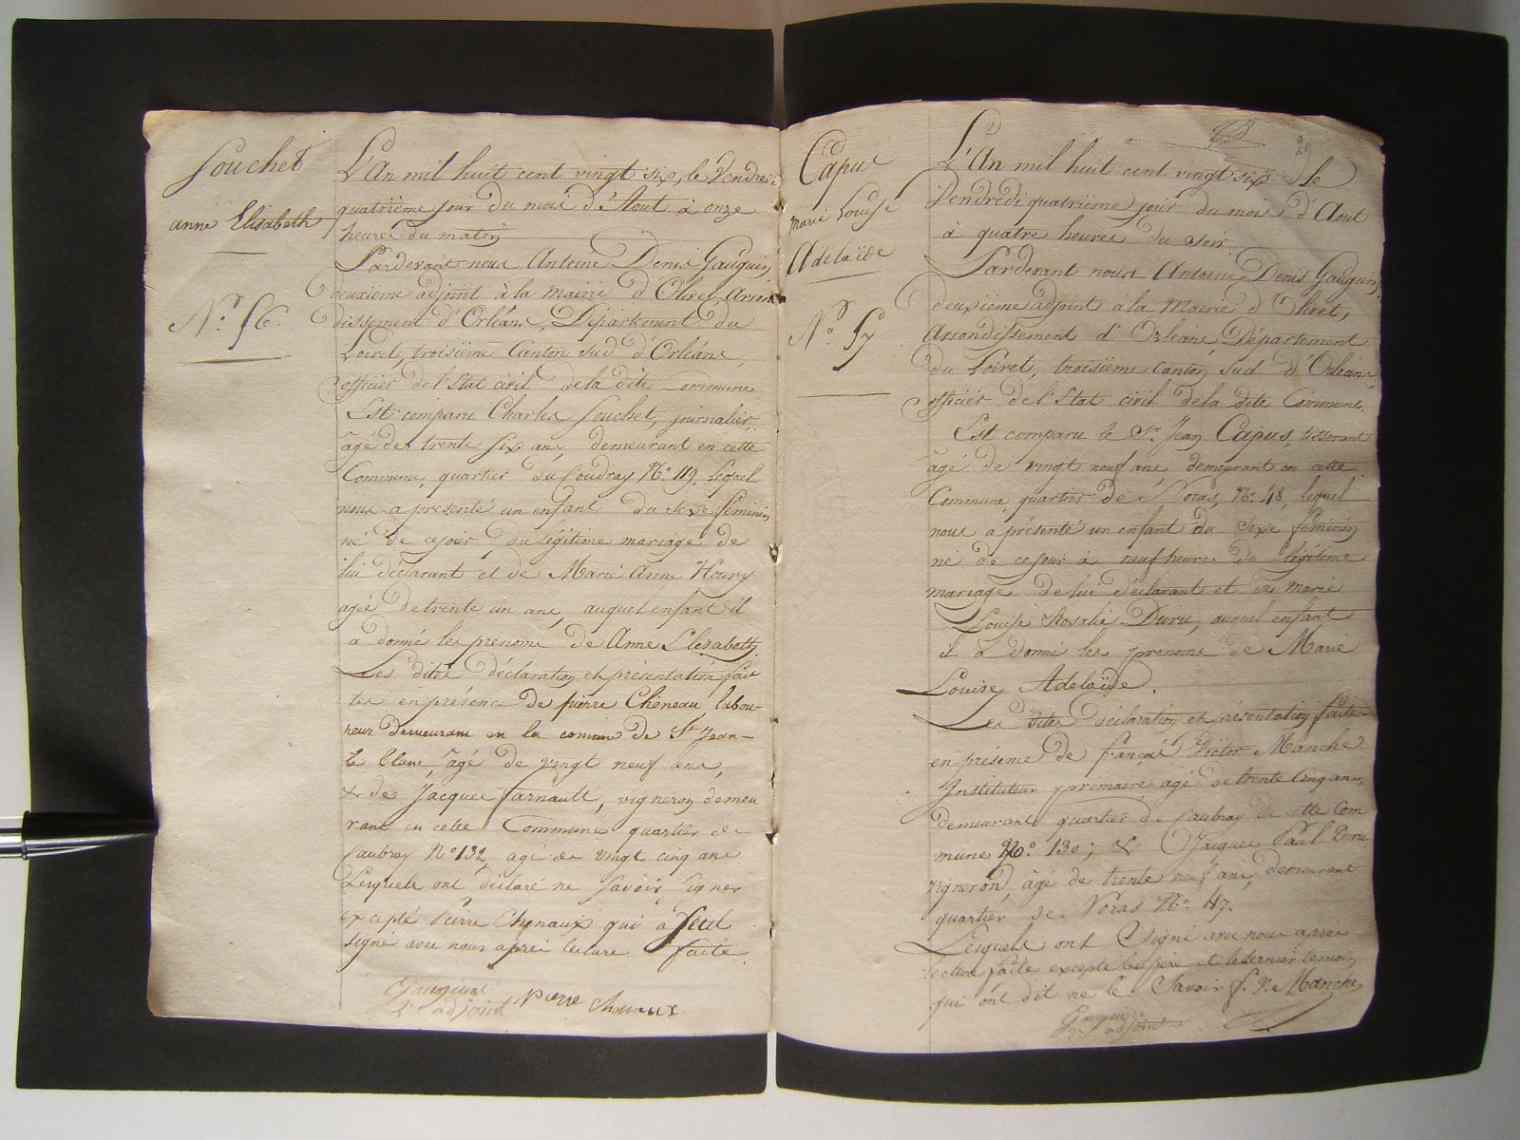 Souchet
anne Elisabeth
N.° 56.
L'An mil huit cent vingt six, le Vendredi
quatrième jour du mois d'Aout à onze
heures du matin
Pardevant nous Antoine Denis Gauguin
deuxième adjoint à la Mairie d'Olivet, Arron
dissement d'Orléans, Département du
Loiret, troisième Canton sud d'Orléans,
officier de l'Etat civil de la dite commune
Est comparu Charles Souchet, journalier,
âgé de trente six ans, demeurant en cette
Commune, quartier du Coudray N.° 119, lequel
nous a présenté un enfant du Sexe féminin
né de ce jour du légitime mariage de
lui déclarant et de Marie Anne Houry
agée de trente un ans, auquel enfant il
a donné les prenoms de Anne Elesabeth
Les dites déclaration et présentation fai
tes en présence de pierre Cheneau labou-
reur demeurant en la comune de St Jean-
le blanc, âgé de vingt neuf ans,
& de Jacques farnault, vigneron demeu
rant en cette Commune quartier de
Caubray N° 132, agé de vingt cinq ans
Lesquels ont déclaré ne Savoir Signer
excepté Pierre Chenaux qui a Seul
signé avec nous après lecture faite.
Gauguin
2e adjoint Pierre Chenaux
Capus
marie Louise
Adelaïde
N.° 57
L'An mil huit cent vingt six le
Vendredi quatrième jour du mois d'Aout
à quatre heures du soir
Pardevant nous Antoine Denis Gauguin,
deuxième adjoint a la Mairie d'Olivet,
Arrondissement d'Orléans, Département
du Loiret, troisième canton Sud d'Orléans
officier de l'Etat civil de la dite Commune.
Est comparu le Sr Jean Capus, tisserant
âgé de vingt neuf ans demeurant en cette
Commune, quartier de Noras, N.° 48, lequel
nous a présenté un enfant du Sexe féminin
né de ce jour à neuf heures du légitime
mariage de lui déclarant et de marie
Louise Rosalie Duru, auquel enfant
il a donné les prenoms de Marie
Louise Adelaïde.
Les dites déclaration et présentation faites
en présence de françois Victor Manche
Instituteur primaire agé de trente cinq ans,
demeurant quartier de Caubray de cette Com
mune N.° 130; & Jacques Paul Duru
vigneron, âgé de trente neuf ans, demeurant
quartier de Noras N.° 47.
Lesquels ont Signé avec nous après
lecture faite excepté le père et le dernier temoin
qui ont dit ne le Savoir f. V. Manche
Gauguin
2e adjoint